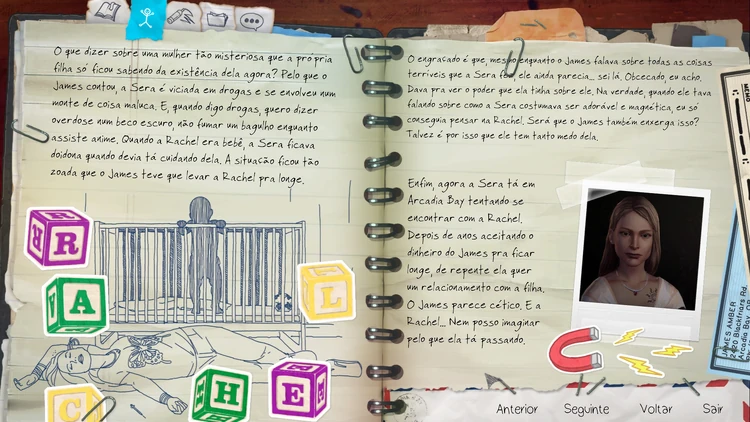 O que dizer sobre uma mulher tão misteriosa que a própria
filha só ficou sabendo da existência dela agora? Pelo que o
James contou, a Sera é viciada em drogas e se envolveu num
monte de coisa maluca. E, quando digo drogas, quero dizer
overdose num beco escuro, não fumar um bagulho enquanto
assiste anime. Quando a Rachel era bebê, a Sera ficava
doidona quando devia tá cuidando dela. A situação ficou tão
zoada que o James teve que levar a Rachel pra longe.
R
A
L
C
H
E
O engraçado é que, mesmo enquanto o James falava sobre todas as coisas
terríveis que a Sera fez, ele ainda parecia... sei lá. Obcecado, eu acho.
Dava pra ver o poder que ela tinha sobre ele. Na verdade, quando ele tava
falando sobre como a Sera costumava ser adorável e magnética, eu só
conseguia pensar na Rachel. Será que o James também enxerga isso?
Talvez é por isso que ele tem tanto medo dela.
Enfim, agora a Sera tá em
Arcadia Bay tentando se
encontrar com a Rachel.
Depois de anos aceitando o
dinheiro do James pra ficar
longe, de repente ela quer
um relacionamento com a filha.
O James parece cético. E a
Rachel... Nem posso imaginar
pelo que ela tá passando.
MEMO
JAMES AMBER
Arcadia Bay,
Anterior Seguinte Voltar Sair